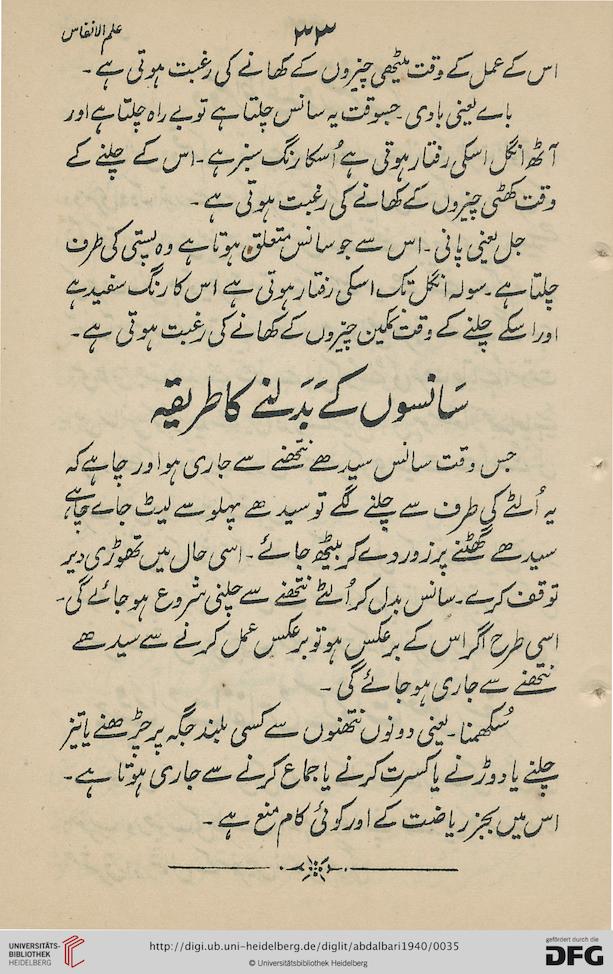 ۳۳
علم الانفاس
اس کے عمل کے وقت میٹھی چیزوں کے کھانے کی رغبت ہوتی ہے ۔
باے یعنی بادی ۔ جسوقت یہ سانس چلتا ہے تو بے راہ چلتا ہے اور
آٹھ انگل اسکی رفتار ہوتی ہے اُسکا رنگ سبز ہے ۔ اس کے چلنے کے
وقت کھٹی چیزوں کے کھانے کی رغبت ہوتی ہے ۔
جل یعنی پانی ۔ اس سے جو سانس متعلق ہوتا ہے وہ پستی کی طرف
چلتا ہے ۔ سولہ انگل تک اسکی رفتار ہوتی ہے اس کا رنگ سفید ہے
اور اسکے چلنے کے وقت نمکین چیزوں کے کھانے کی رغبت ہوتی ہے ۔
سَانسوں کے بَدَلنے کا طریقہ
جس وقت سانس سیدھے نتھنے سے جاری ہو اور چاہے کہ
یہ اُلٹے کی طرف سے چلنے لگے تو سیدھے پہلو سے لیٹ جاے چاہے
سیدھے گھٹنے پر زور دے کر بیٹھ جائے ۔ اسی حال میں تھوڑی دیر
توقف کرے ۔ سانس بدل کر اُلٹے نتھنے سے چلنی شروع ہو جائے گی ۔
اسی طرح اگر اس کے برعکس ہو تو برعکس عمل کرنے سے سیدھے
نتھنے سے جاری ہو جائے گی ۔
سُکھمنا ۔ یعنی دونوں نتھنوں سے کسی بلند جگہ پر چڑھنے یا تیز
چلنے یا دوڑنے یا کسرت کرنے یا جماع کرنے سے جاری ہوتا ہے ۔
اس میں بجز ریاضت کے اور کوئی کام منع ہے ۔
UNIVERSITÄTS-
BIBLIOTHEK
HEIDELBERG
http://digi.ub.uni-heidelberg.de/diglit/abdalbari1940/0035
© Universitätsbibliothek Heidelberg
gefördert durch die
DFG